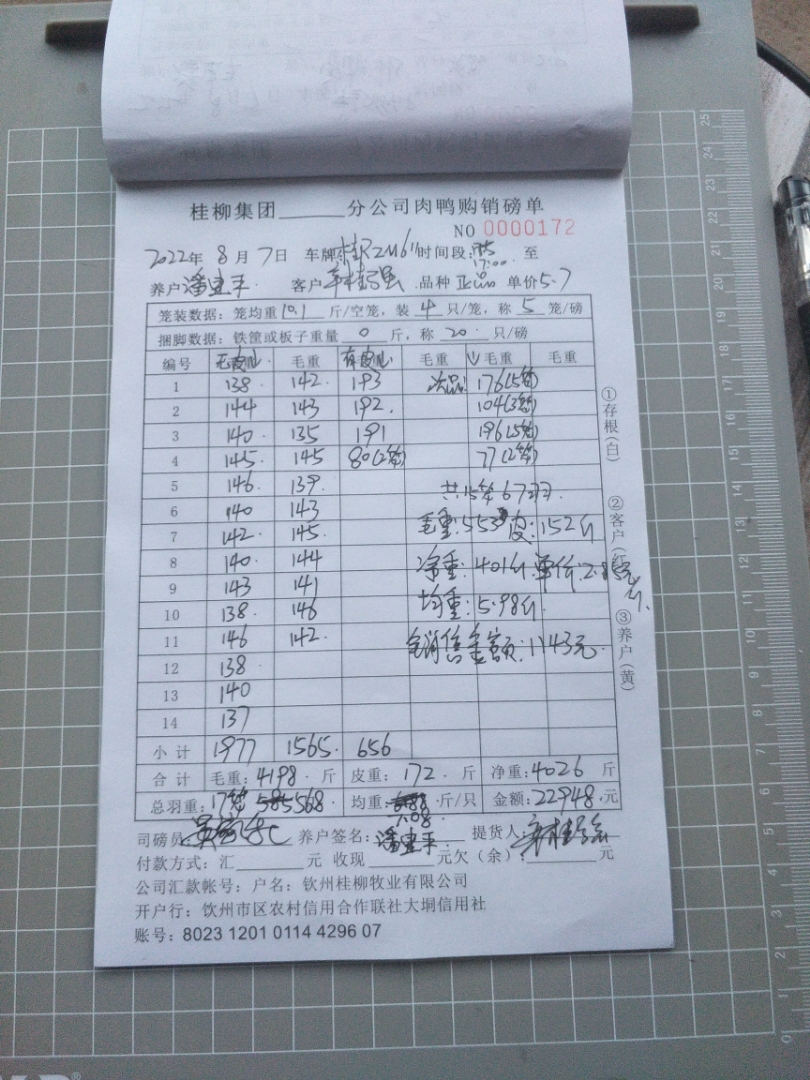 桂柳集团______分公司肉鸭购销磅单
NO 0000172
2022年 8月 7日 车牌 时间段: 17:00 至
养户 潘 客户 品种 正品 单价 5.7
笼装数据: 笼均重 10.1 斤/空笼, 装 4 只/笼, 称 5 笼/磅
捆脚数据: 铁筐或板子重量 0 斤, 称 20 只/磅
编号 无皮 毛重 有皮 毛重 毛重 毛重
1 138 142 193 次品: 176(5笼)
2 144 143 192 104(3笼)
3 140 135 191 196(5笼)
4 145 145 80(2笼) 77(2笼)
5 146 139 共15笼67羽
6 140 143
7 142 145 毛重:553 皮:152斤
8 140 144 净重:401斤 单价:2.85元/斤
9 143 141
10 138 146 均重:5.98斤
11 146 142 销售金额:1143元
12 138
13 140
14 137
小计 1977 1565 656
合计 毛重: 4198 斤 皮重: 172 斤 净重: 4026 斤
总羽重: 17笼 568 均重: 7.08 斤/只 金额: 22948 元
司磅员: 养户签名: 潘 提货人:
付款方式: 汇______元 收现______元欠(余)______元
公司汇款帐号: 户名: 钦州桂柳牧业有限公司
开户行: 钦州市区农村信用合作联社大垌信用社
账号: 8023 1201 0114 4296 07
①存根(白)
②客户(红)
③养户(黄)
0
1
2
3
4
5
6
7
8
9
10
11
12
13
14
15
16
17
18
19
20
21
22
23
24
25